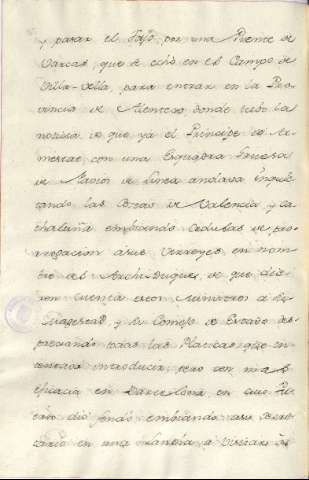 y pasar el Tajo por una Puente de
Barcas, que se hizo en el Campo de
Villa-Vella, para entrar en la Pro
vincia de Alentejo donde tubo la
noticia de que ya el Principe de Ar
mestat con una Esquadra Inglesa
de Navios de linea andava inquie
tando las Costas de Valencia, y Ca
thaluña embiando Cedulas de pro
rogacion à sus Virreyes en nom
bre del Archiduque, de que die
ron cuenta estos Ministros à Su
Magestad, y su Consejo de Estado des
preciando todas las Platicas que in
tentava introducir, pero con mas
eficacia en Barcelona en cuio Pu
erto dió fondo embiando à su Secre
tario en una Lancha à